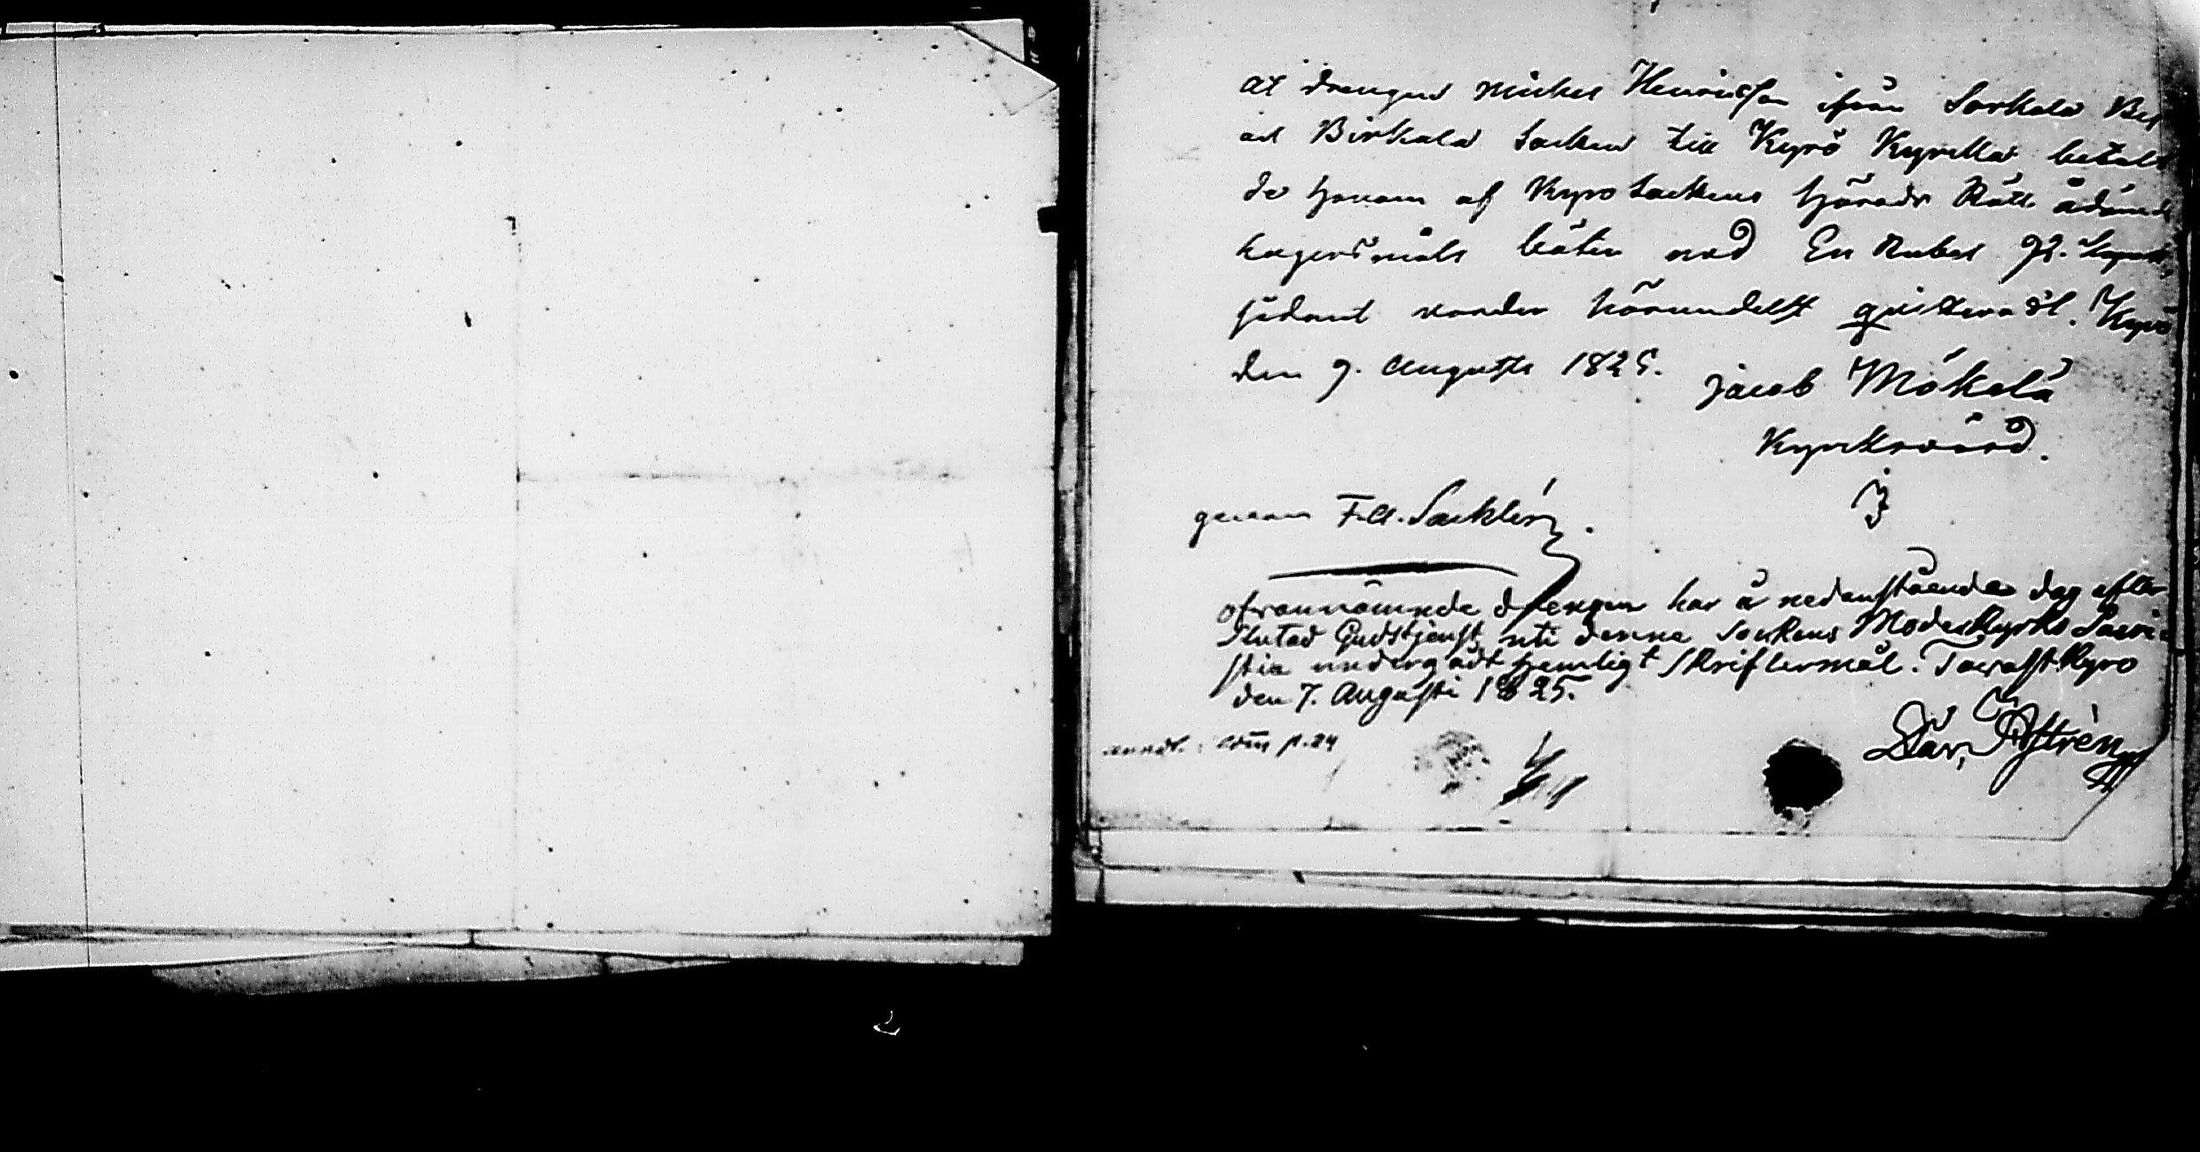 at drengen Michel Henricsson ifrån Sorkala
Birkala Socken till Kyrö Kyrcka betalt
de honom af Kyro Sockens Härads Rätt ådömde
lägersmåls böter med En Rubel 92. Kopek
sådant varder härmedelst qvitteradt. Kyro
den 7. Augusti 1825. Jacob Mäkelä
Kyrckvärd.
genom F.A. Sacklén.
ofvannämnde drengen har å nedanstående dag efter
slutad Gudstjenst uti denne Sockens Moderkyrko Sacri-
stia undergådt hemligt Skriftermål. TavastKyro
den 7. Augusti 1825.
Dav. Astrén